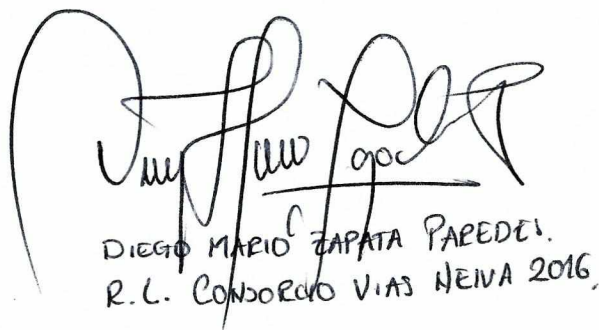 DIEGO MARIO ZAPATA PAREDES.
R.L. CONSORCIO VIAS NEIVA 2016.